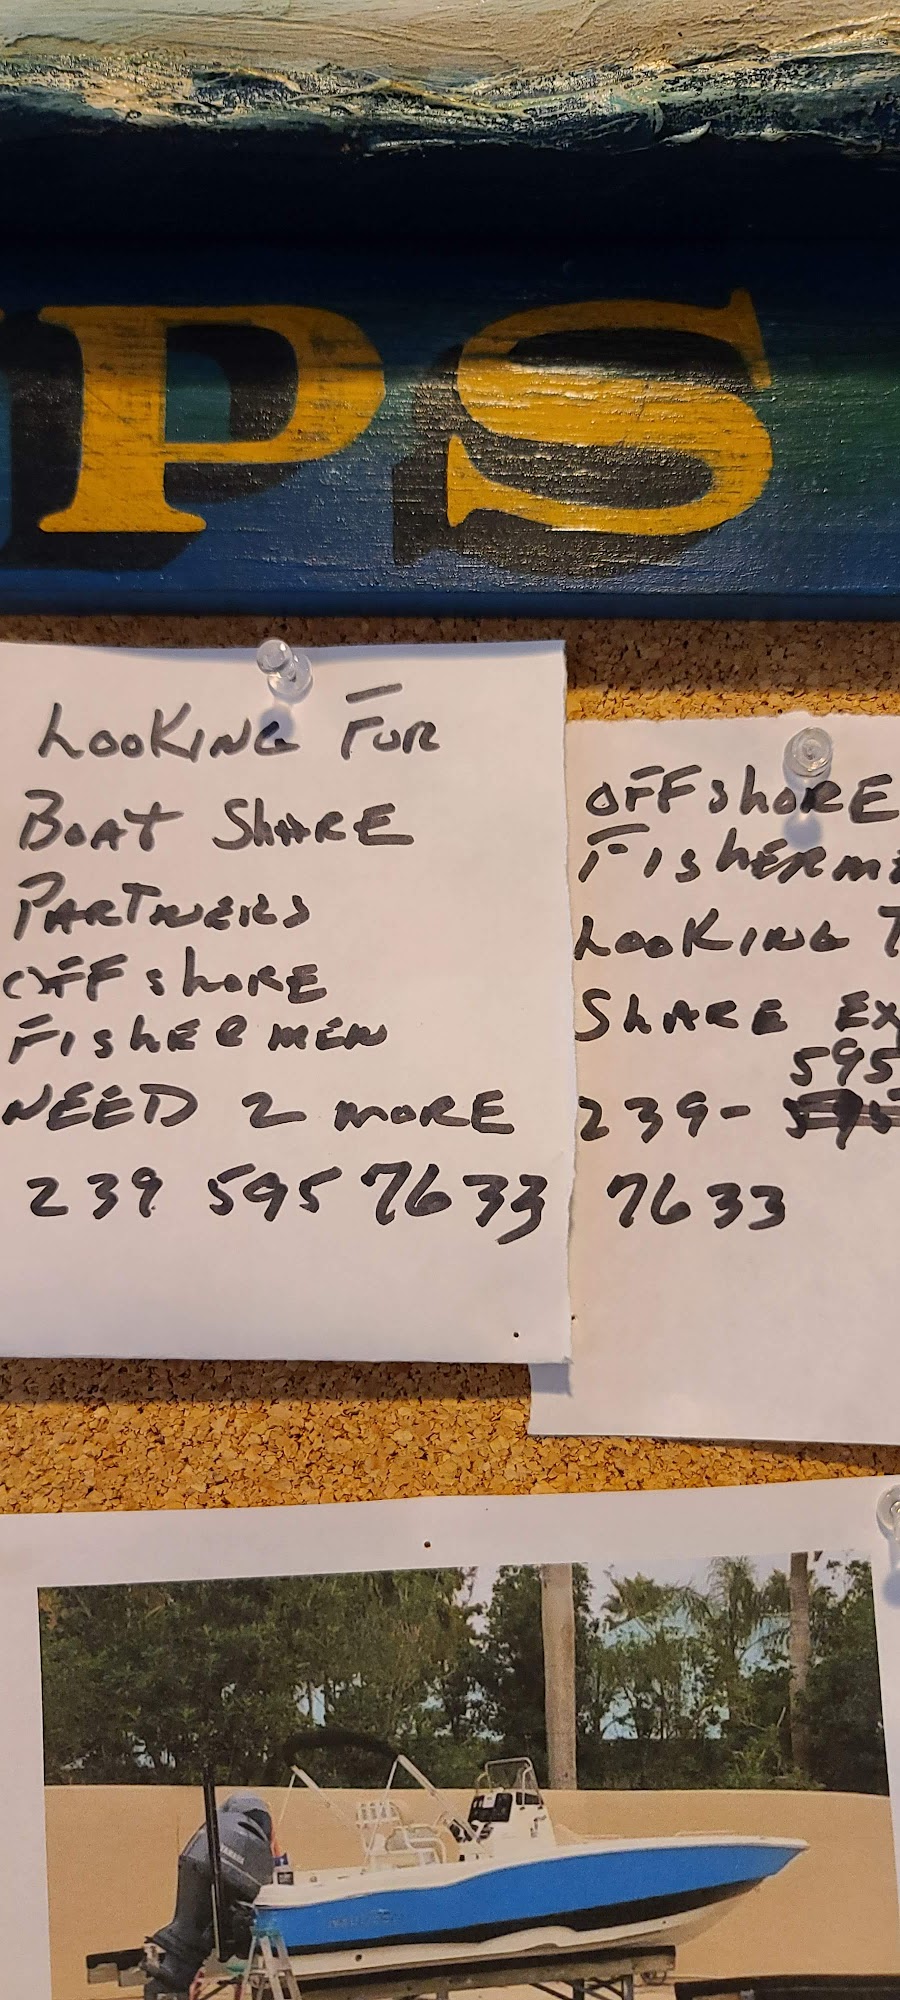 PS
LOOKING FOR
BOAT SHARE
PARTNERS
OFFSHORE
FISHERMEN
NEED 2 MORE
239 595 7633
OFFSHORE
FISHERME
LOOKING T
SHARE EX
595
239-
7633
YAMAHA